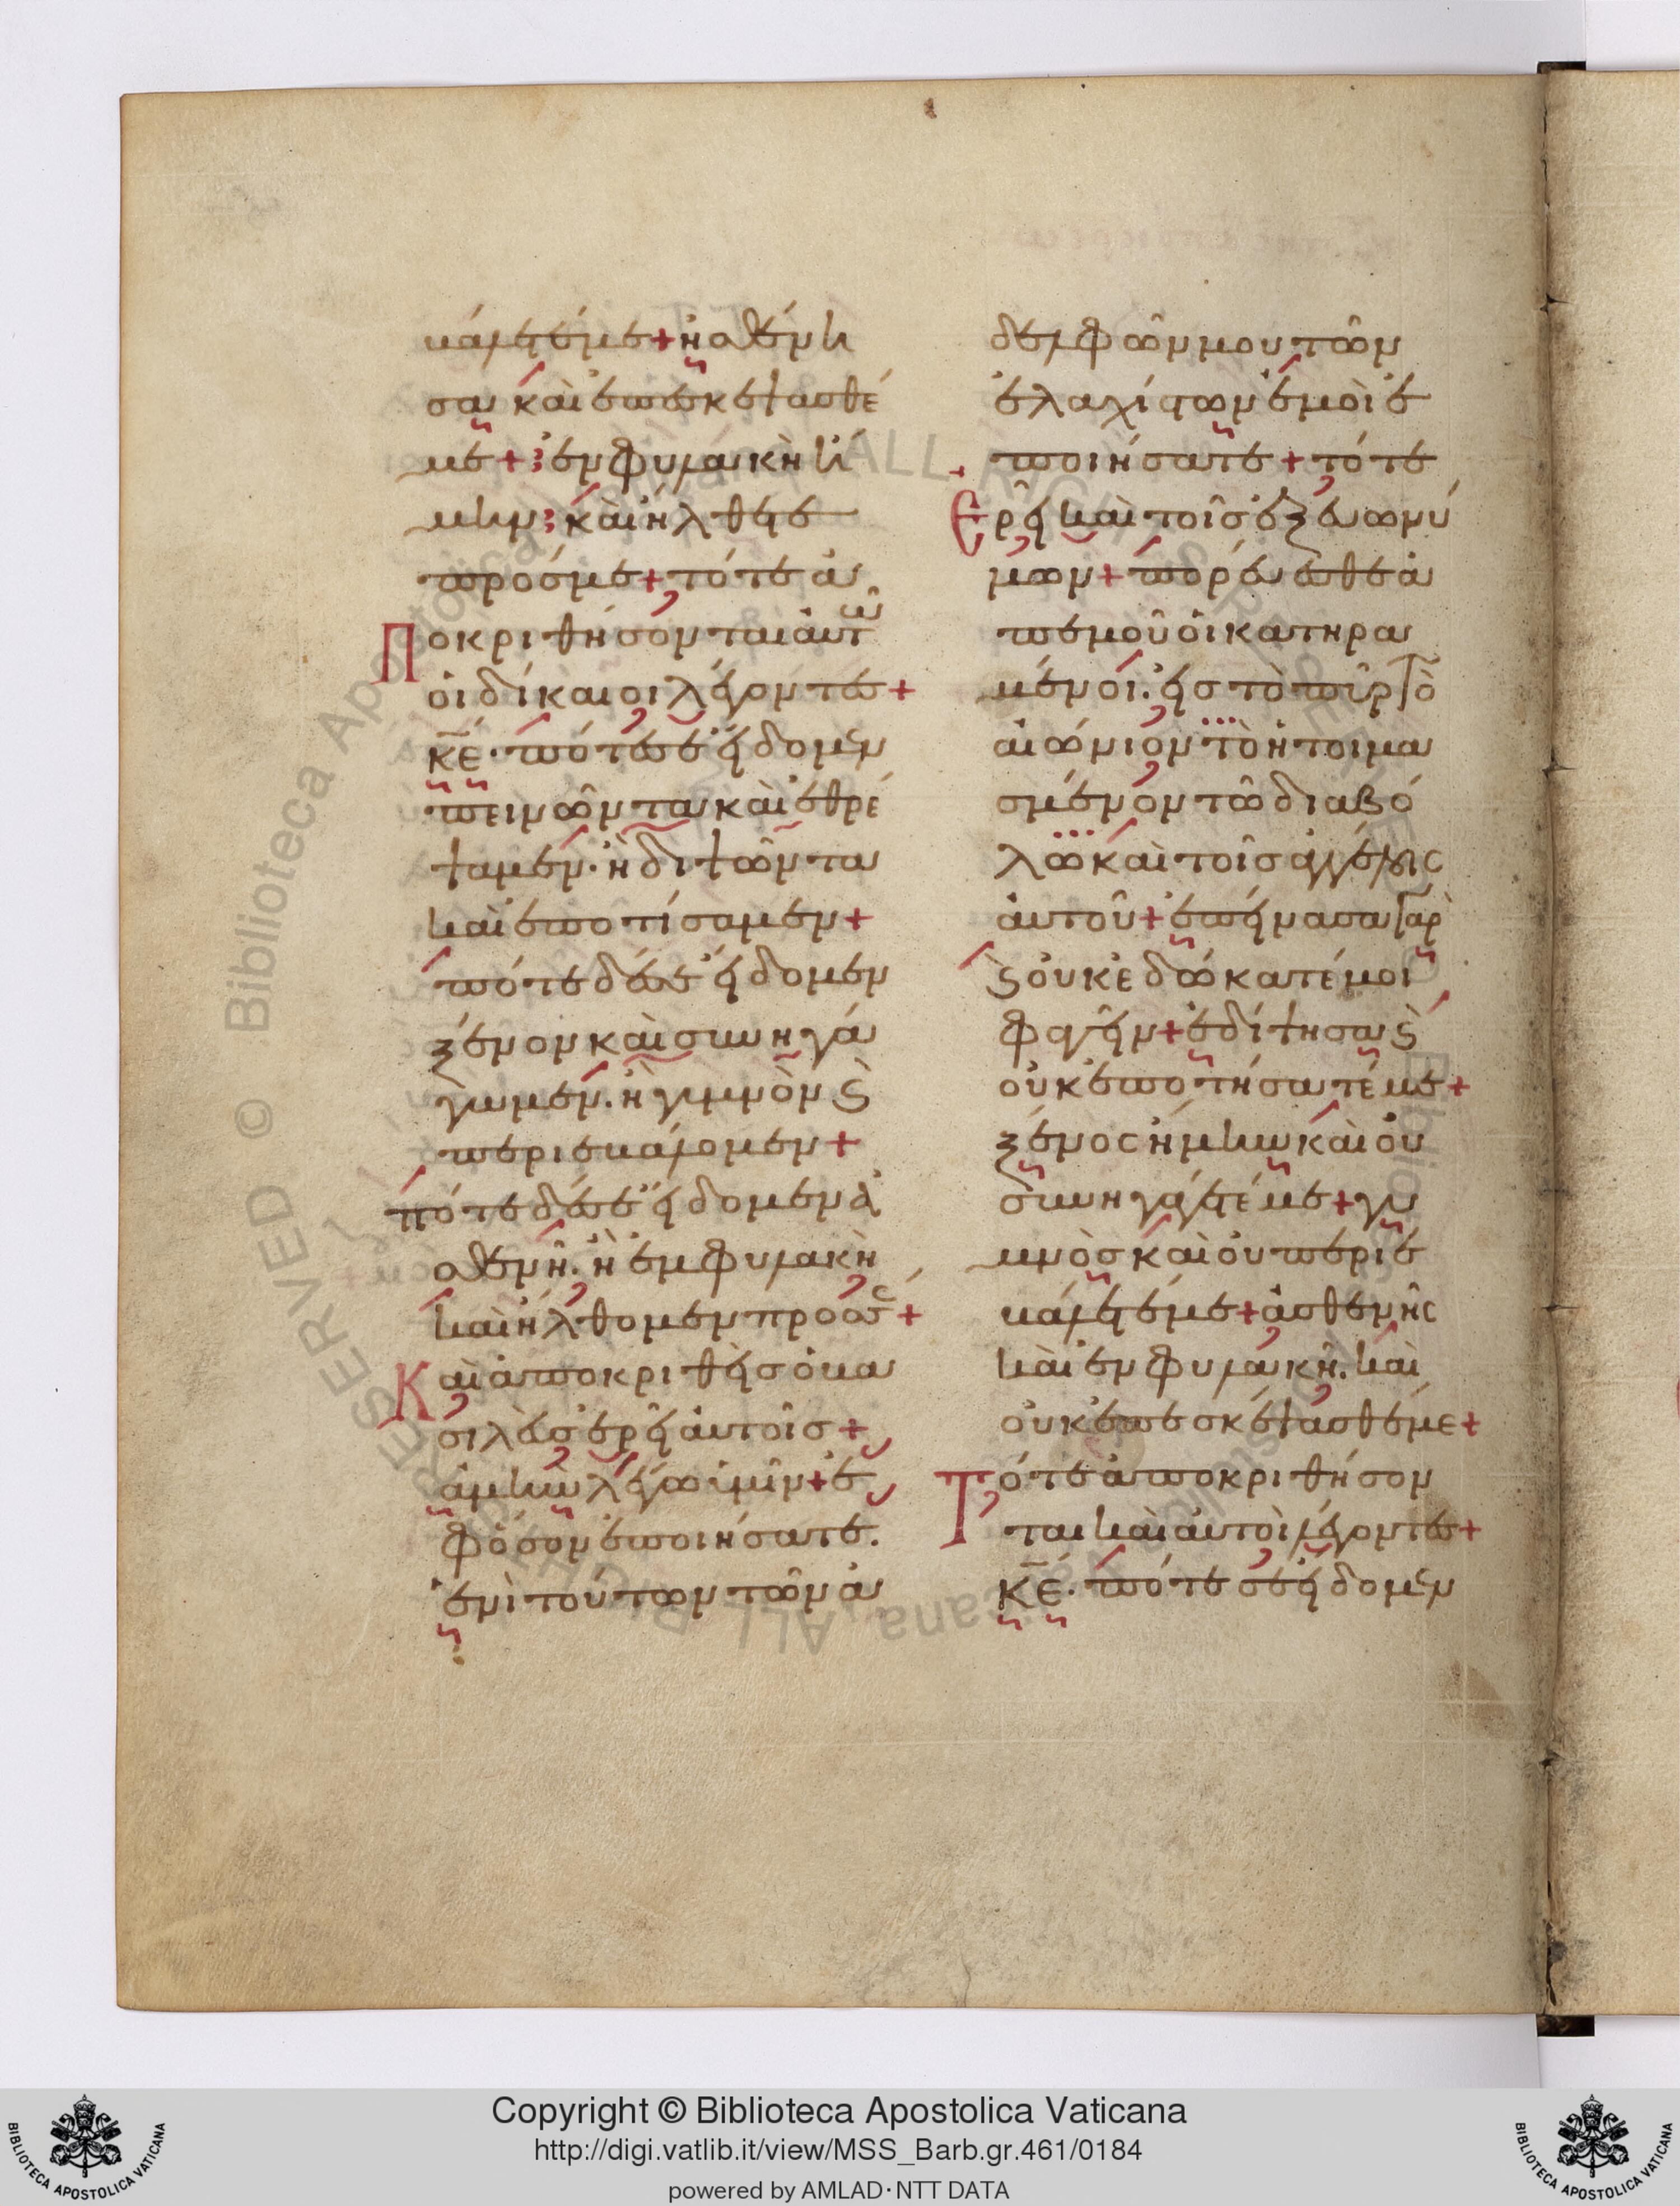 βάλετέ με + ἠσθένη
σα καὶ ἐπεσκέψασθέ
με + ἐν φυλακῆ ἤ
μην καὶ ἤλθετε
πρός με + τότε ἀ
ποκριθήσονται αὐτῶ
οἱ δίκαιοι λέγοντες +
κ̅ε̅ · πότε σε εἴδομεν
πεινῶντα καὶ ἐθρέ
ψαμεν · ἢ διψῶντα
καὶ ἐποτίσαμεν +
πότε δέ σε εἴδομεν
ξένον καὶ συνηγά
γωμεν · ἢ γυμνὸν ϗ
περιεβάλομεν +
πότε δέ σε εἴδομεν ἀ
σθενῆ · ἢ ἐν φυλακῆ
καὶ ἤλθομεν πρός σε +
Καὶ ἀποκριθεὶς ὁ βα
σιλεὺς ἐρεῖ αὐτοῖς +
ἀμὴν λέγω ὑμῖν + ἐ
φ ὅσον ἐποιήσατε ·
ἑνὶ τούτων τῶν ἀ
δελφῶν μου τῶν
ἐλαχίστων ἐμοὶ ἐ
ποιήσατε + τότε
Ερεῖ καὶ τοῖς ἐξ εὐωνύ
μων + πορεύεσθε ἀ
π ἐμοῦ οἱ κατηρα
μένοι · εἰς τὸ πῦρ τὸ
αἰώνιον τὸ ἡτοιμα
σμένον τῶ διαβό
λω καὶ τοῖς ἀγγέλοις
αὐτοῦ + ἐπείνασα γὰρ
ϗ οὐκ ἐδώκατέ μοι
φαγεῖν + ἐδίψησα ϗ
οὐκ ἐποτήσατέ με +
ξένος ἤμην καὶ οὐ
συνηγάγετέ με + γυ
μνὸς καὶ οὐ περιε
βάλετέ με + ἀσθενὴς
καὶ ἐν φυλακῆ · καὶ
οὐκ ἐπεσκέψασθέ με +
Τότε ἀποκριθήσον
ται καὶ αὐτοὶ λέγοντες +
κ̅ε̅ · πότε σε εἴδομεν
Copyright © Biblioteca Apostolica Vaticana
http://digi.vatlib.it/view/MSS_Barb.gr.461/0184
powered by AMLAD·NTT DATA